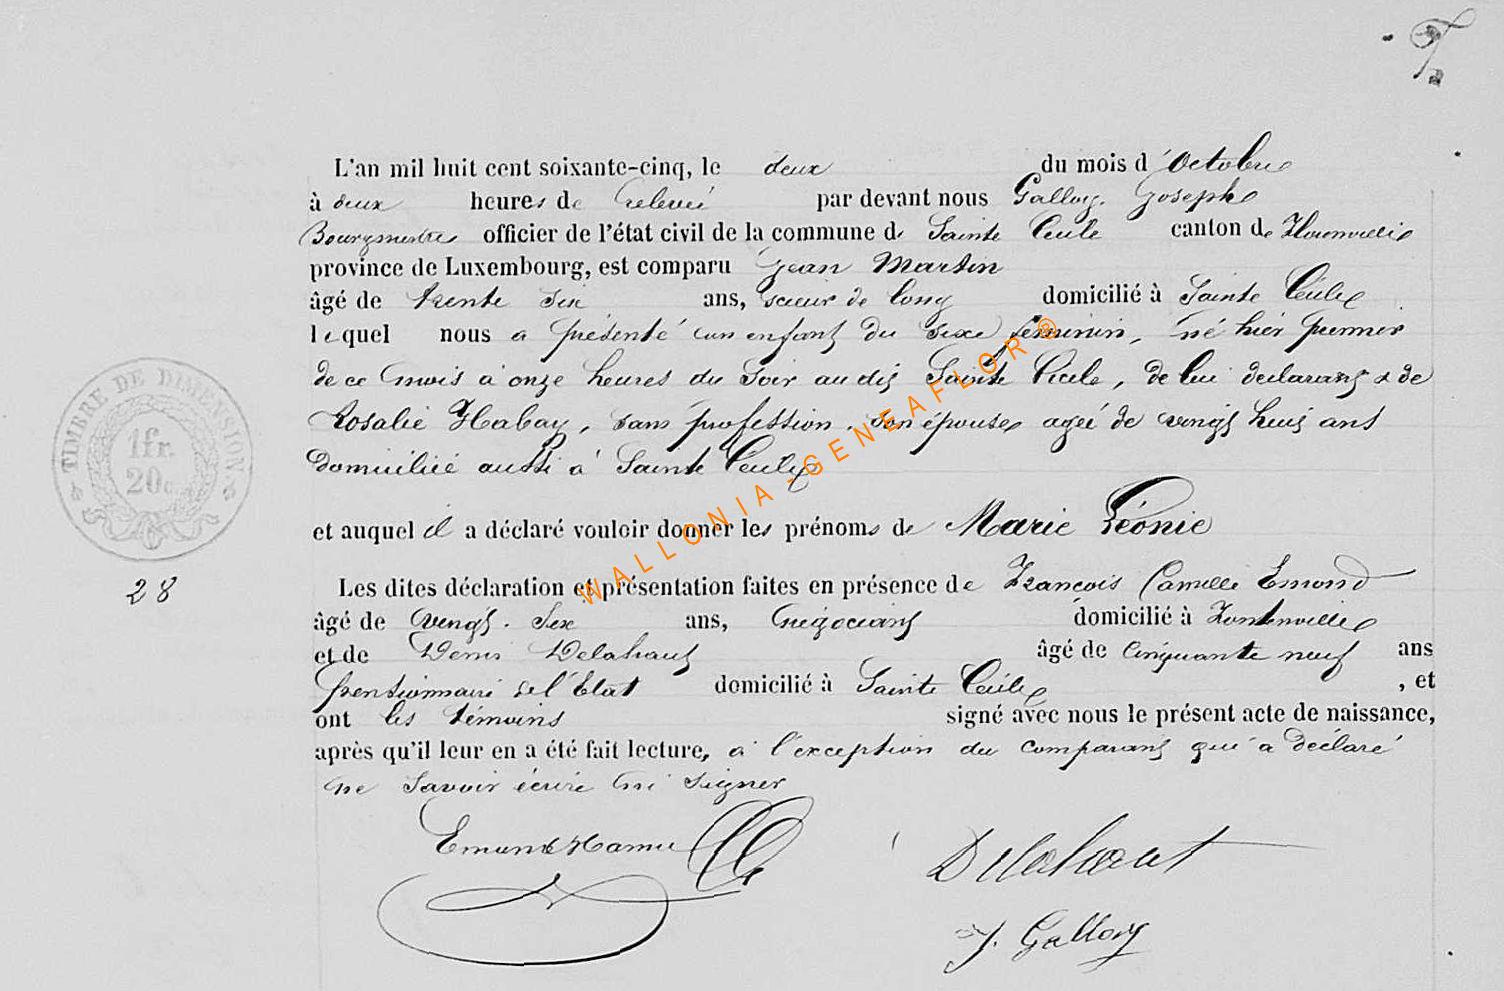 L'an mil huit cent soixante-cinq, le deux du mois d'Octobre
à deux heures de relevée par devant nous Galloy Joseph
Bourgmestre officier de l'état civil de la commune de Sainte Cécile canton de Florenville
province de Luxembourg, est comparu Jean Martin
âgé de trente six ans, scieur de long domicilié à Sainte Cécile
lequel nous a présenté un enfant du sexe féminin, né hier premier
de ce mois à onze heures du soir au dit Sainte Cécile, de lui déclarant & de
Rosalie Habay, sans profession, son épouse agée de vingt huit ans
domiciliée aussi à Sainte Cécile
et auquel il a déclaré vouloir donner les prénoms de Marie Léonie
TIMBRE DE DIMENSION
1fr.
20c.
28
Les dites déclaration et présentation faites en présence de François Camille Emond
âgé de vingt six ans, négociant domicilié à Fontenoille
et de Denis Delahaut âgé de cinquante neuf ans
pensionnaire de l'Etat domicilié à Sainte Cécile, et
ont les témoins signé avec nous le présent acte de naissance,
après qu'il leur en a été fait lecture, à l'exception du comparant qui a déclaré
ne savoir écrire ni signer
Delahaut
J. Galloy
WALLONIA-GENEAFLOR®